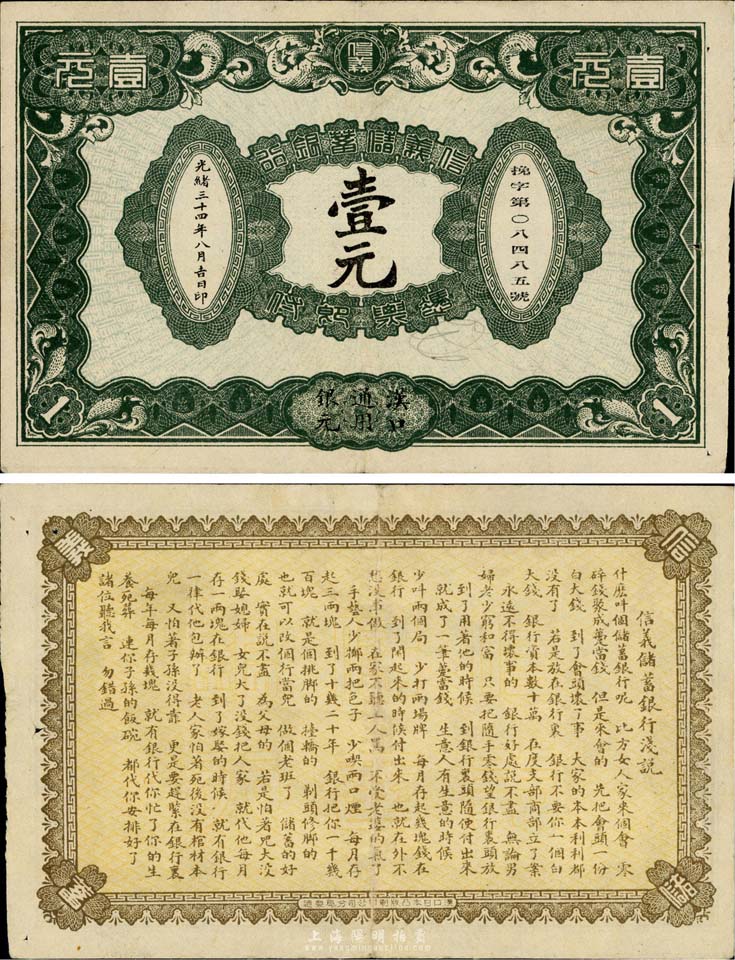 信義
壹元
壹元
信義儲蓄銀行
壹元
挽字第〇八四八五號
光緒三十四年八月吉日印
漢口
通用
銀元
1
1
信
義
儲
蓄
信義儲蓄銀行淺說
什麽呌個儲蓄銀行呢 比方女人家來個會 零
碎錢聚成萬當錢 但是來會的 先把會頭一份
白大錢 到了會頭壞了事 大家的本本利利都
沒有了 若是放在銀行裏 銀行不要你一個白
大錢 銀行資本數十萬 在度支部商部立了案
永遠不得壞事的 銀行好處說不盡 無論男
婦老少窮和富 只要把隨手零錢望銀行裏頭放
到了用著他的時候 到銀行裏頭隨便付出來
就成了一筆萬當錢 生意人有生意的時候
少呌兩個局 少打兩場牌 每月存起幾塊錢在
銀行 到了閒起來的時候付出來 也就在外不
愁沒事做 在家不聽工人罵 不受老婆的氣了
手藝人少擲兩把色子 少喫兩口煙 每月存
起三兩塊 到了十幾二十年 銀行把你一千幾
百塊 就是個挑脚的 擡轎的 剃頭修脚的
也就可以改個行當兒 做個老班了 儲蓄的好
處 實在說不盡 為父母的 若是怕著兒大沒
錢娶媳婦 女兒大了沒錢把人家 就代他每月
存一兩塊在銀行 到了嫁娶的時候 就有銀行
一律代他包辦了 老人家怕著死後沒有棺材本
兒 又怕著子孫沒得靠 更是要趕緊在銀行裏
每年每月存幾塊 就有銀行代你忙了你的生
養死葬 連你子孫的飯碗 都代你安排好了
諸位聽我言 勿錯過
上海陽明拍賣
www.yangmingauction.com